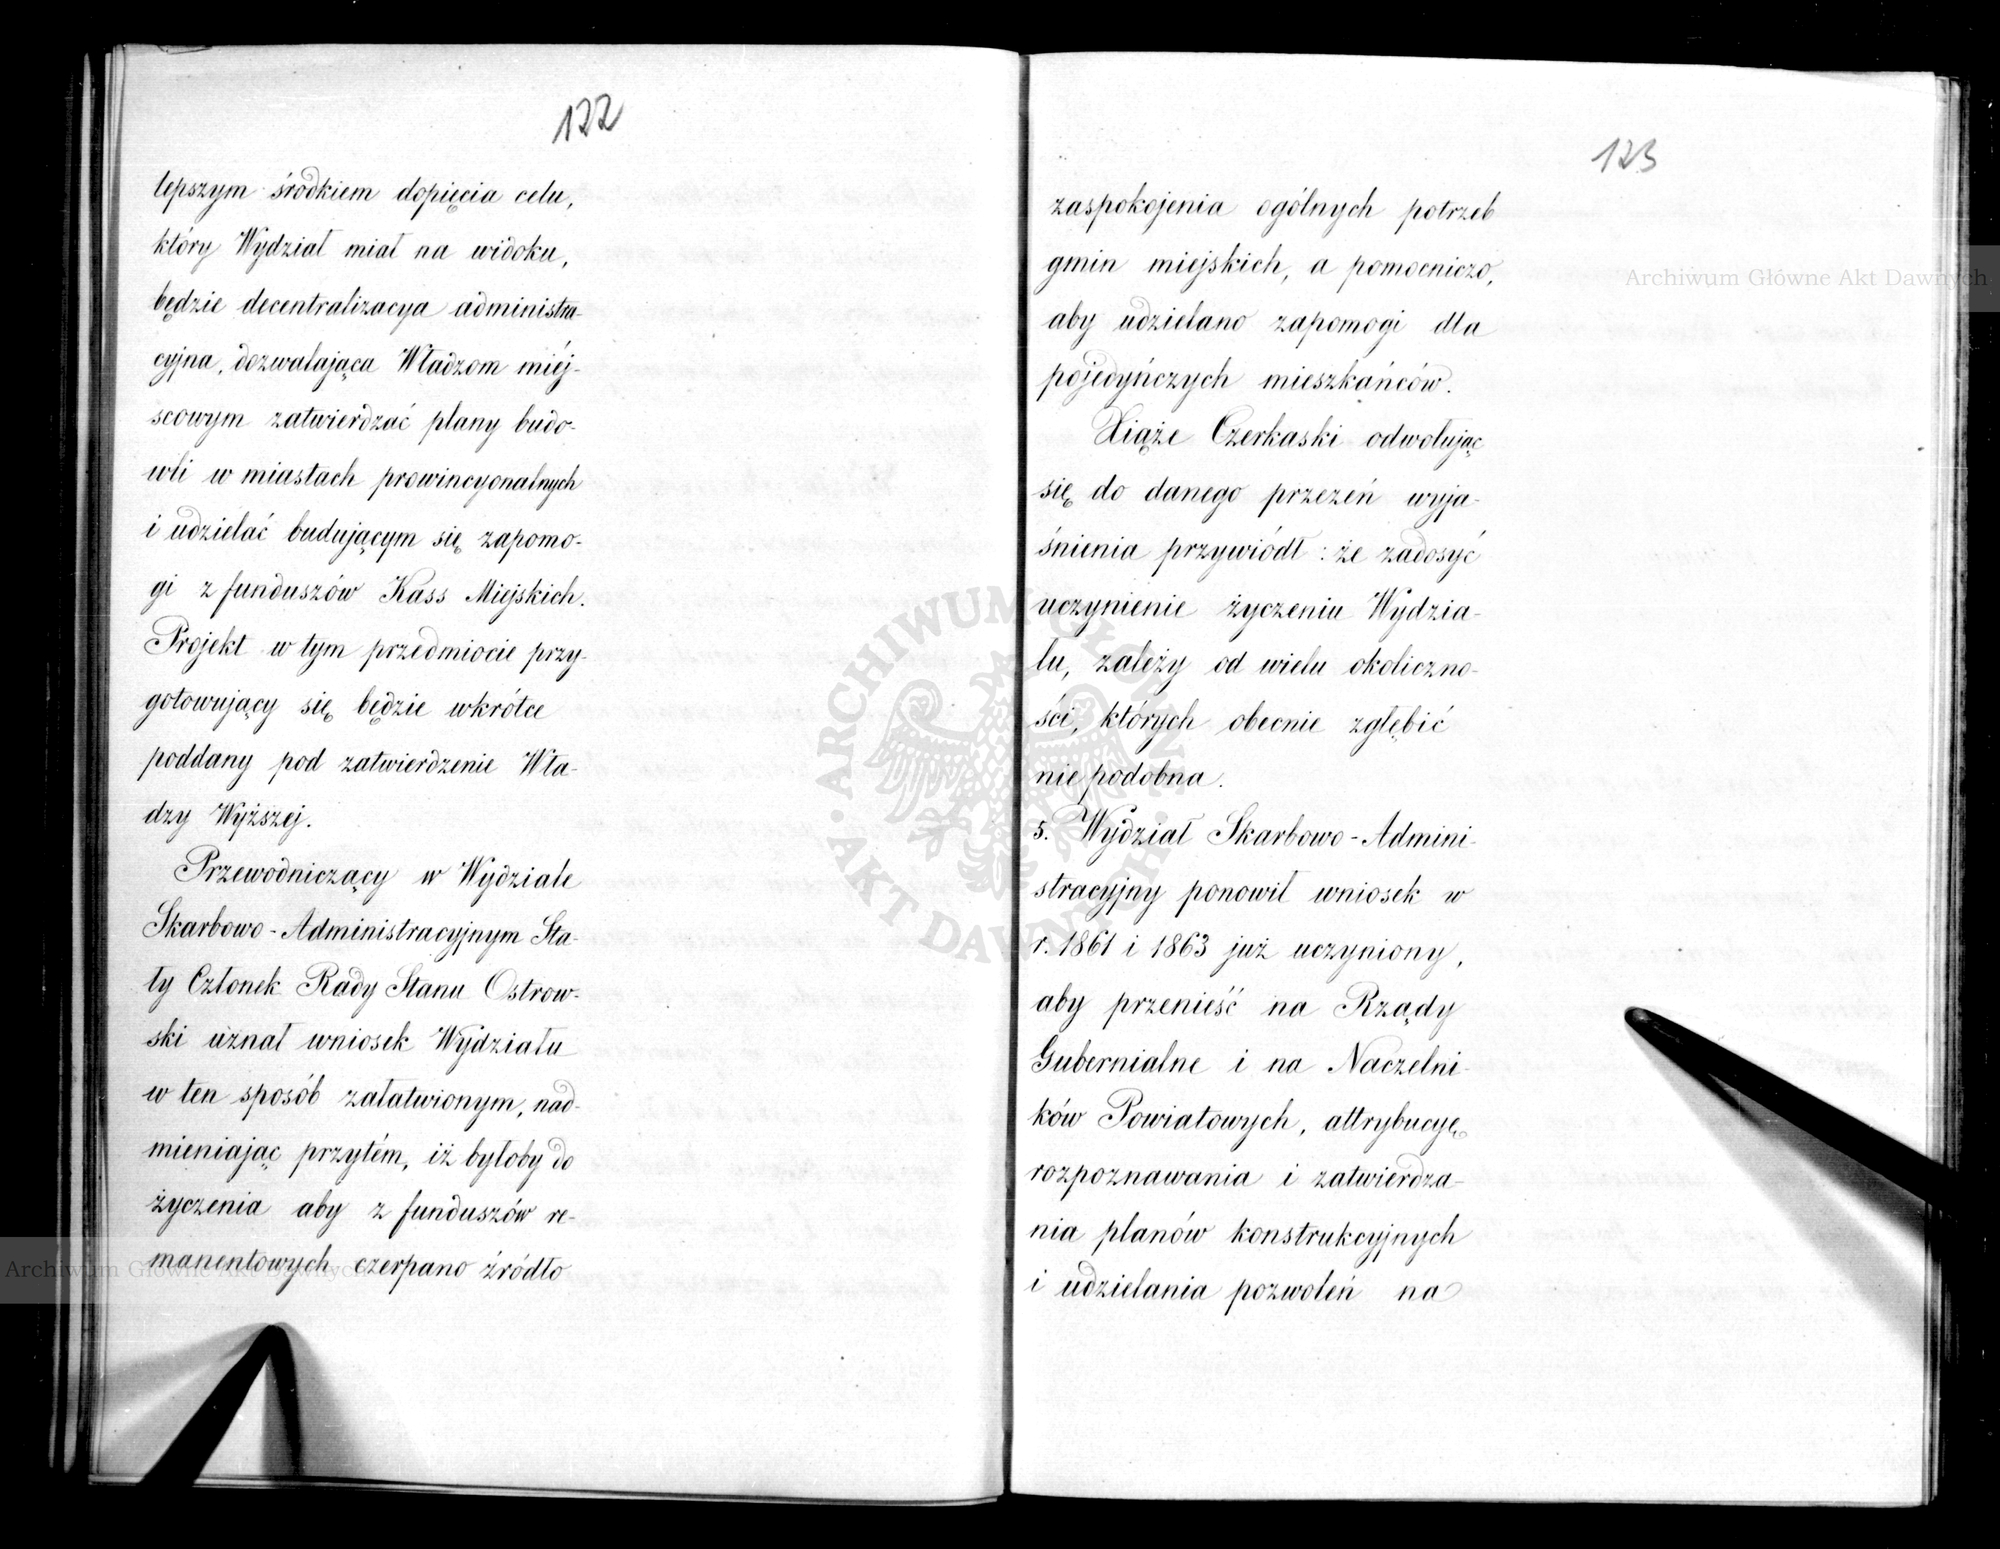 122
lepszym środkiem dopięcia celu,
który Wydział miał na widoku,
będzie decentralizacya administra-
cyjna, dozwalająca Władzom miéj-
scowym zatwierdzać plany budo-
wli w miastach prowincyonalnych
i udzielać budującym się zapomo-
gi z funduszów Kass Miejskich.
Projekt w tym przedmiocie przy-
gotowujący się będzie wkrótce
poddany pod zatwierdzenie Wła-
dzy Wyższej.
Przewodniczący w Wydziale
Skarbowo-Administracyjnym Sta-
ły Członek Rady Stanu Ostrow-
ski uznał wniosek Wydziału
w ten sposób załatwionym, nad-
mieniając przytém, iż byłoby do
życzenia aby z funduszów re-
manentowych czerpano źródło
123
zaspokojenia ogólnych potrzeb
gmin miejskich, a pomocniczo,
aby udzielano zapomogi dla
pojedyńczych mieszkańców.
Xiąże Czerkaski odwołując
się do danego przezeń wyja-
śnienia przywiódł: że zadosyć
uczynienie życzeniu Wydzia-
łu, zależy od wielu okoliczno-
ści, których obecnie zgłębić
niepodobna.
5. Wydział Skarbowo-Admini-
stracyjny ponowił wniosek w
r. 1861 i 1863 już uczyniony,
aby przenieść na Rządy
Gubernialne i na Naczelni-
ków Powiatowych, attrybucyę
rozpoznawania i zatwierdza-
nia planów konstrukcyjnych
i udzielania pozwoleń na
Archiwum Główne Akt Dawnych
Archiwum Główne Akt Dawnych
ARCHIWUM GŁÓWNE AKT DAWNYCH